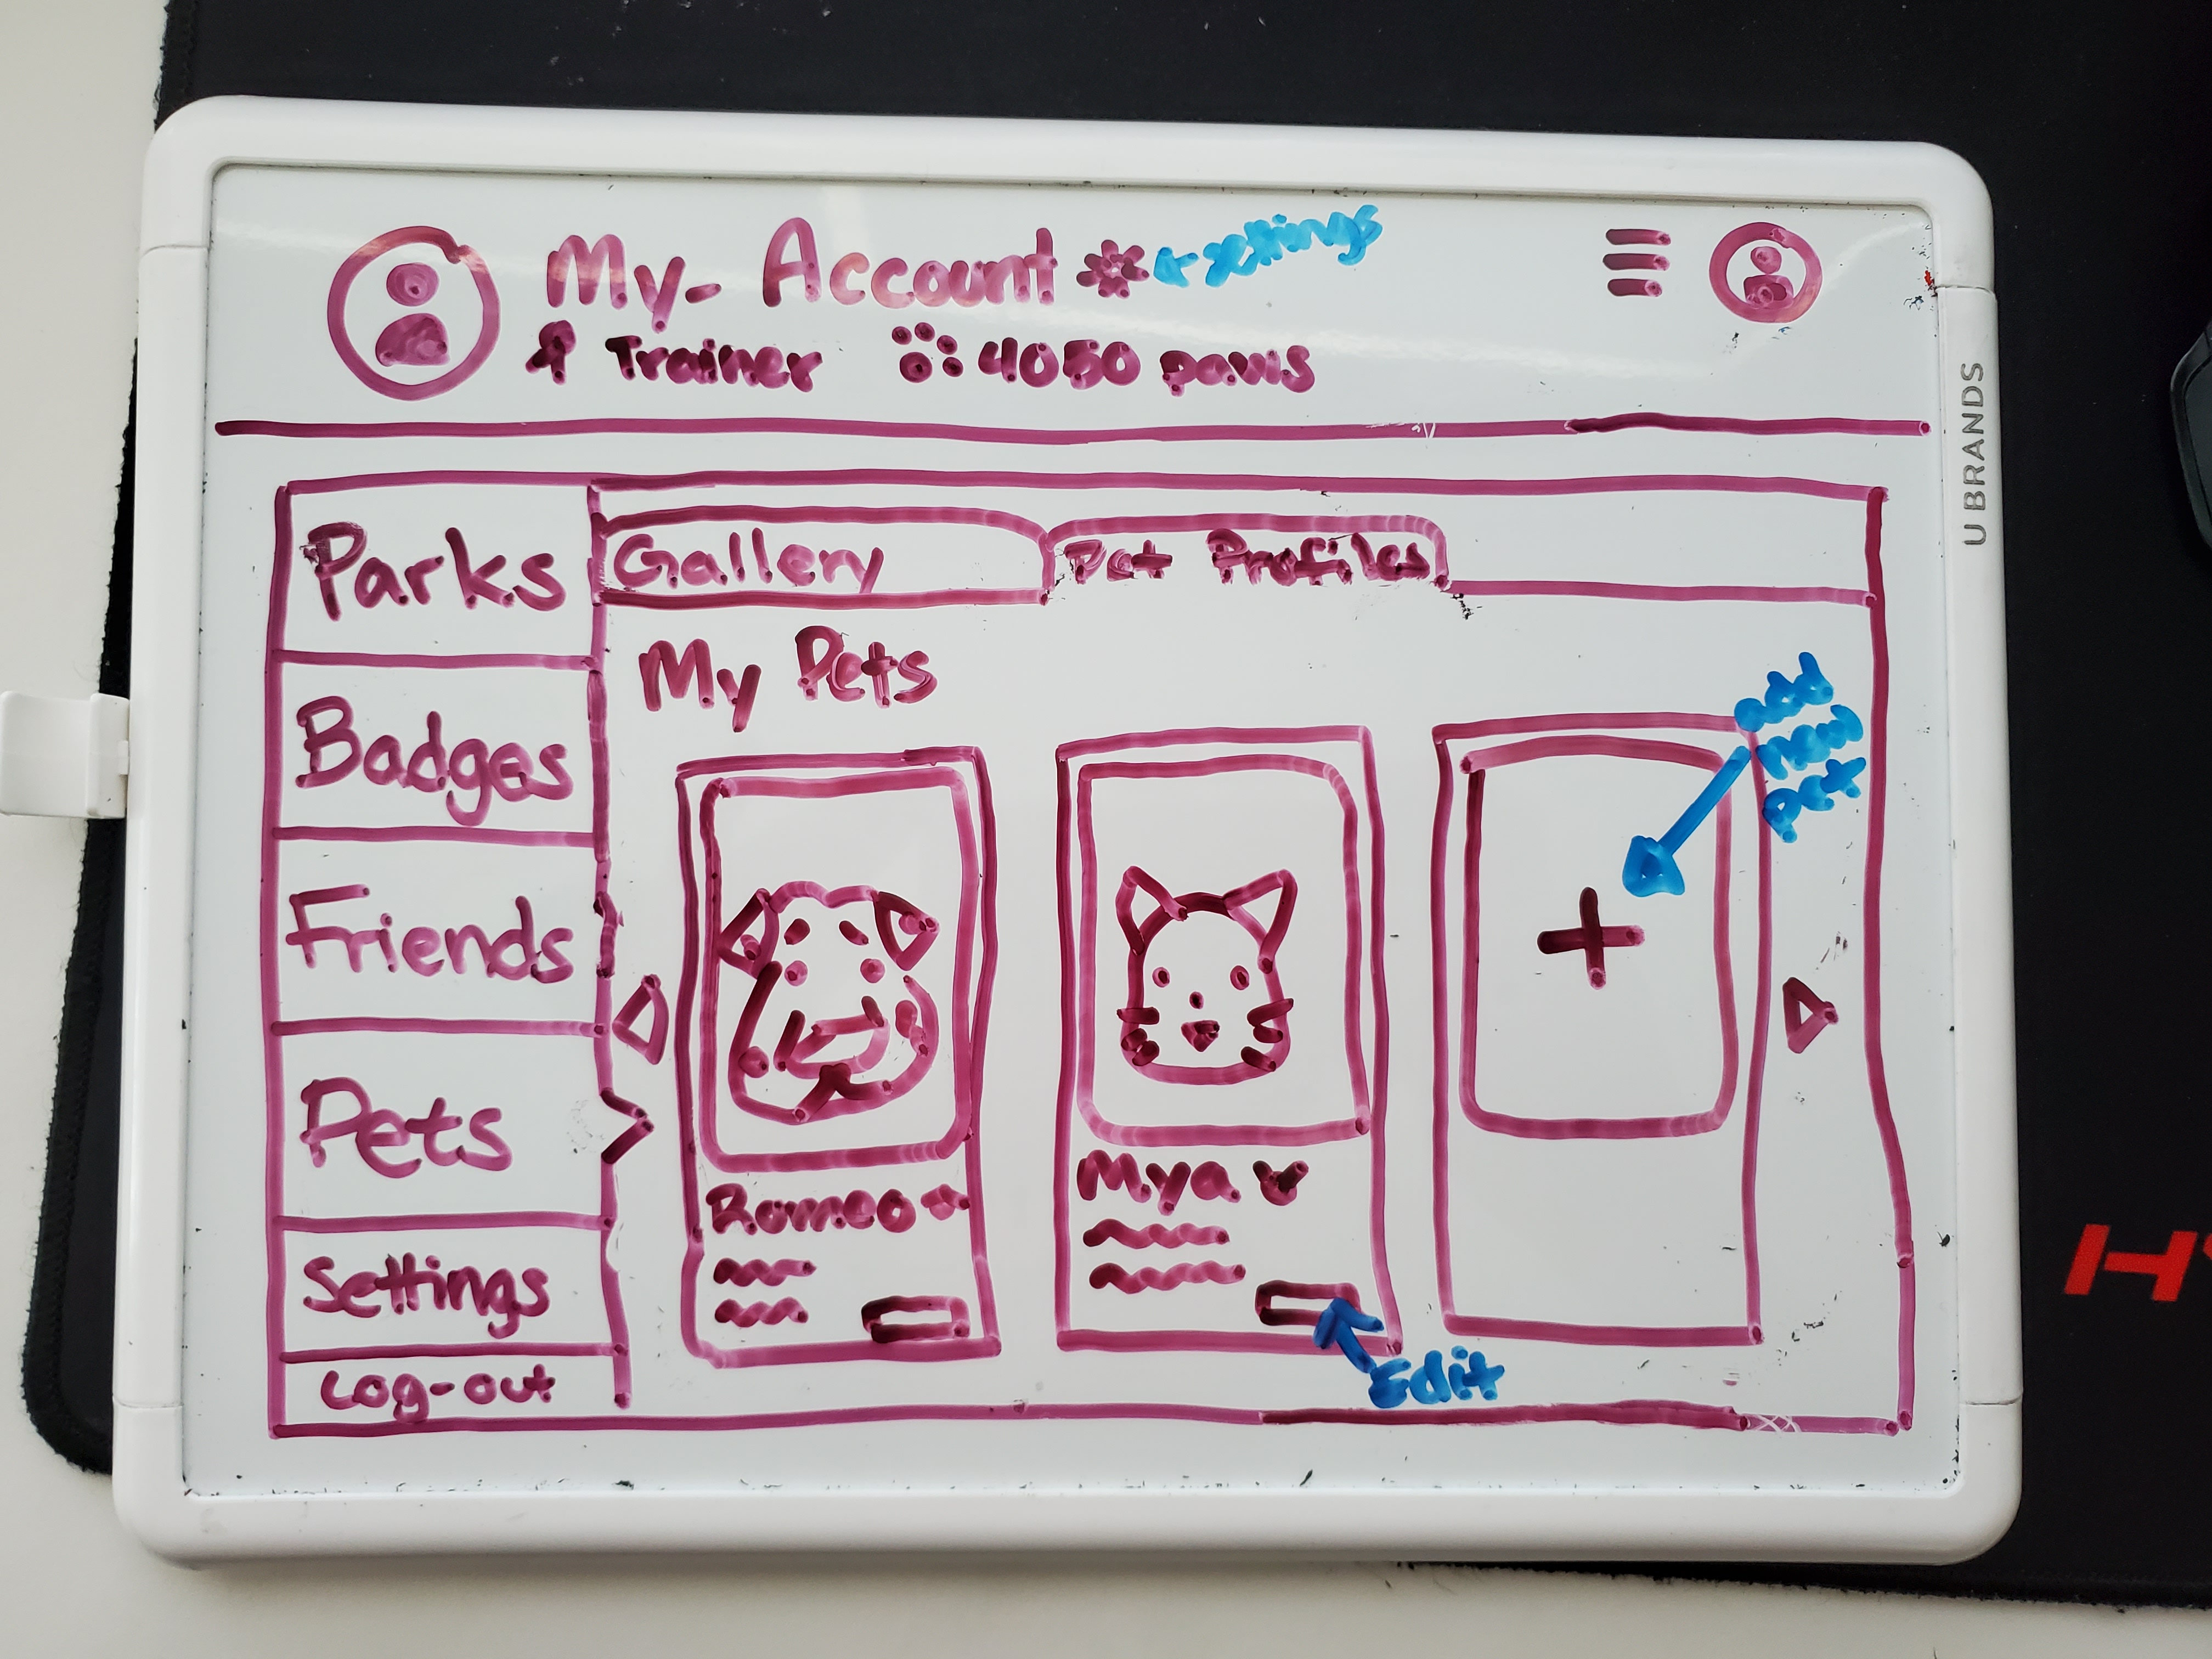 My-Account
settings
Trainer
4050 paws
Parks
Badges
Friends
Pets
Settings
Log-out
Gallery
Pet Profiles
My Pets
Romeo
Mya
+
Add
new
pet
Edit
U BRANDS